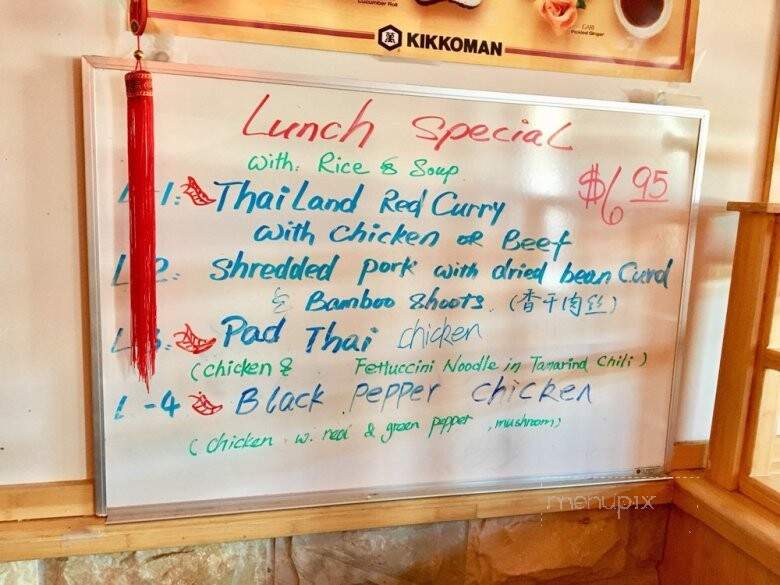 Cucumber Roll
GARI
Pickled Ginger
KIKKOMAN
Lunch Special
with: Rice & Soup
$6 95
L-1: Thailand Red Curry
with chicken or Beef
L-2: Shredded pork with dried bean Curd
& Bamboo Shoots. (香干肉丝)
L-3: Pad Thai chicken
(chicken & Fettuccini Noodle in Tamarind Chili)
L-4 Black pepper chicken
(chicken w. red & green pepper, mushroom)
menupix